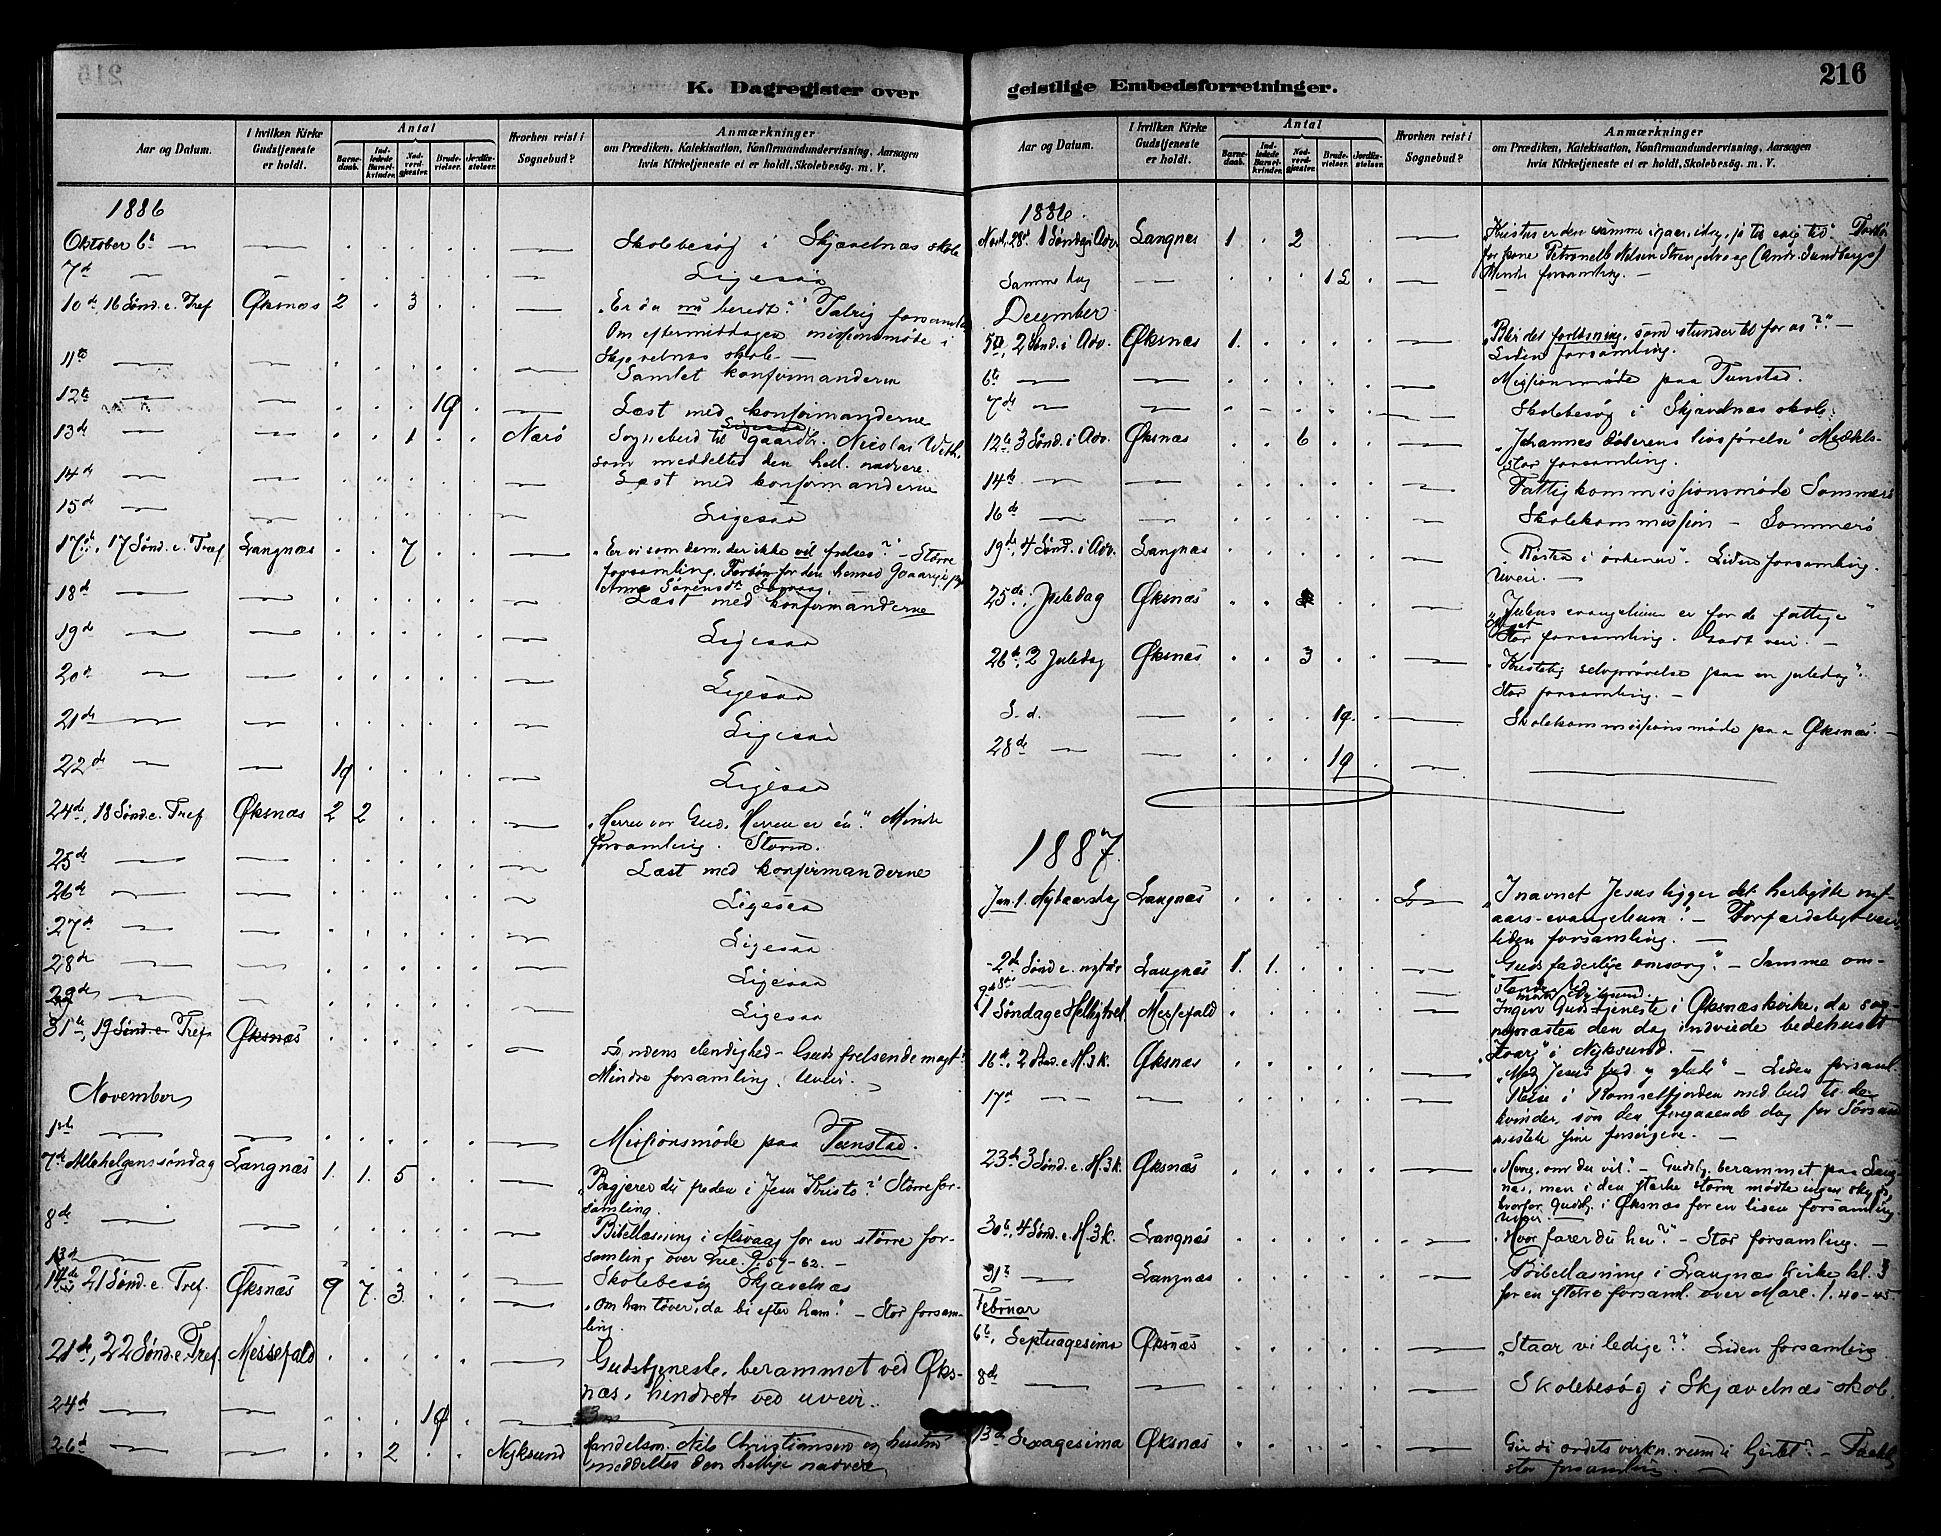 216
K. Dagregister over
geistlige Embedsforretninger.
Aar og Datum.
I hvilken Kirke Gudstjeneste er holdt.
Antal
Barnedaab.
Indledede Barselkvinder.
Nadverdgjæster.
Brudevielser.
Jordfæstelser.
Hvorhen reist i Sognebud?
Anmærkninger
om Prædiken, Katekisation, Konfirmandundervisning, Aarsagen
hvis Kirketjeneste ei er holdt, Skolebesøg. m. V.
1886
Oktober 6te Skolebesøg i Skjævelnæs skole
7de Ligesaa
10de, 16 Sønd. e. Tref Øksnæs 2 3 „Er du nu beredt?" Talrig forsamling
Om eftermiddagen missionsmøde i
Skjævelnæs skole
11te Samlet konfirmanderne
12te 1 Læst med konfirmanderne
13de 1 Nærø Sognebud til gaardbr. Nicolai
som meddeltes den hell. nadvere.
14de Læst med konfirmanderne
15de Ligesaa
17de, 17 Sønd. e. Tref Langnæs 7 „Er vi som dem, der ikke vil frelses?" – Større
forsamling. Forbøn for den
Anne Sørensdt.
18de Læst med konfirmanderne
19de Ligesaa
20de Ligesaa
21de Ligesaa
22de 1 Ligesaa
24de, 18 Sønd. e. Tref Øksnæs 2 2 „Herren vor Gud, Herren er én." Mindre
forsamling. Storm.
25de Læst med konfirmanderne
26de Ligesaa
27de Ligesaa
28de Ligesaa
29de Ligesaa
31te, 19 Sønd. e. Tref Øksnæs Syndens elendighed – Guds frelsende magt.
Mindre forsamling. Uveir.
November
1ste Missionsmøde paa Tunstad.
7de Allehelgenssøndag Langnæs 1. 1. 5 „Begjærer du freden i Jesu Kristo?" Større for-
samling.
8de Bibellæsning i Alsvaag for en større for-
samling over Luc. 9, 57-62. –
13de Skolebesøg Skjævelnæs
14de, 21 Sønd. e. Tref. Øksnæs 9 7. 3. „Om han tøver, da bi efter ham." – Stor forsam-
ling.
21de, 22 Sønd. e. Tref. Messefald Gudstjeneste, berammet ved Øks-
næs, hindret ved uveir.
24de 1
26de 2 Nyksund Handelsm. Nils Christiansen og hustru
meddeltes den hellige nadvere
Aar og Datum.
I hvilken Kirke Gudstjeneste er holdt.
Antal
Barnedaab.
Indledede Barselkvinder.
Nadverdgjæster.
Brudevielser.
Jordfæstelser.
Hvorhen reist i Sognebud?
Anmærkninger
om Prædiken, Katekisation, Konfirmandundervisning, Aarsagen
hvis Kirketjeneste ei er holdt, Skolebesøg. m. V.
1886.
Novbr. 28de 1 Søndag i Adv. Langnæs 1 2 Kristus er den samme igaar, idag, ja til evig tid". Forbøn
for kone Petronelle Nilsen Strengelvaag
Mindre forsamling. –
Samme dag
December
5te, 2 Sønd. i Adv. Øksnæs 1. „Blir det forløsning, som stunder til for os?" –
Liden forsamling.
6te Missionsmøde paa Tunstad.
7de Skolebesøg i Skjævelnæs skole
12te 3 Sønd. i Adv. Øksnæs 6 „Johannes døberens livsførelse" Middels-
stor forsamling.
14de Fattigkommissionsmøde Sommerø
16de Skolekommission – Sommerø
19de, 4 Sønd. i Adv. Langnæs Røsten i ørkenen". Liden forsamling.
Uveir. –
25de. Juledag Øksnæs „Julens evangelium er for de fattige"
Meget
Stor forsamling. Godt veir. –
26de, 2 Juledag Øksnæs 3 „Kristelig selvprøvelse paa en juledag".
Stor forsamling. –
S. d. 1
28de 1 Skolekommissionsmøde paa Øksnæs. –
1887.
Jan. 1. Nytaarsdag Langnæs „I navnet Jesus ligger det herligste nyt-
aars-evangelium." – Forfærdeligt veir,
liden forsamling. –
2de Sønd. e. nytaar Langnæs 1. 1. Guds faderlige omsorg." – Samme om-
stændighed
1 Søndag e Helligtrek. Messefald Ingen Gudstjeneste i Øksnæs kirke, da sog-
nepræsten den dag indviede bedehuset
i Nyksund.
16de, 2 Sønd. e. H.3.k. Øksnæs „Med Jesus ind og glæde" – Liden forsaml.
17de Reise i Romsetfjorden med bud til de
kvinder, som den foregaaende dag
mistede sine forsørgere. –
23de 3 Sønd. e. H.3.k. Øksnæs „Herre, om du vil". – Gudstj. berammet paa Lang-
næs, men i den stærke storm mødte ingen
hvorfor gudstj. i Øksnæs for en liden forsamling
30te, 4 Sønd. e. H.3.k. Langnæs „Hvor farer du hen?" – Stor forsamling. –
31te Langnæs Bibellæsning i Langnæs kirke kl. 3
for en større forsaml. over Marc. 1. 40-45.
Februar
6te, Septuagesima Øksnæs „Staar vi ledige?" Liden forsamling
8de Skolebesøg i Skjævelnæs skole.
13de Sexagesima Øksnæs Gir du ordets virkn. rum i hjertet? –
stor forsamling. –